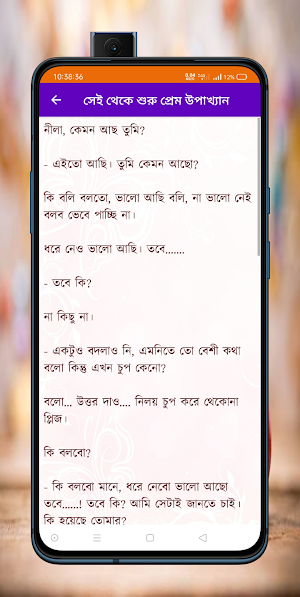 10:38:36
0.04
12%
সেই থেকে শুরু প্রেম উপাখ্যান
নীলা, কেমন আছ তুমি?
- এইতো আছি। তুমি কেমন আছো?
কি বলি বলতো, ভালো আছি বলি, না ভালো নেই
বলব ভেবে পাচ্ছি না।
ধরে নেও ভালো আছি। তবে.......
- তবে কি?
না কিছু না।
- একটুও বদলাও নি, এমনিতে তো বেশী কথা
বলো কিন্তু এখন চুপ কেনো?
বলো... উত্তর দাও.... নিলয় চুপ করে থেকোনা
প্লিজ।
কি বলবো?
- কি বলবো মানে, ধরে নেবো ভালো আছো
তবে......! তবে কি? আমি সেটাই জানতে চাই।
কি হয়েছে তোমার?